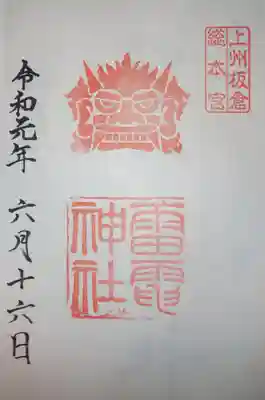 上州板倉
総本宮
雷電
神社
令和元年 六月十六日